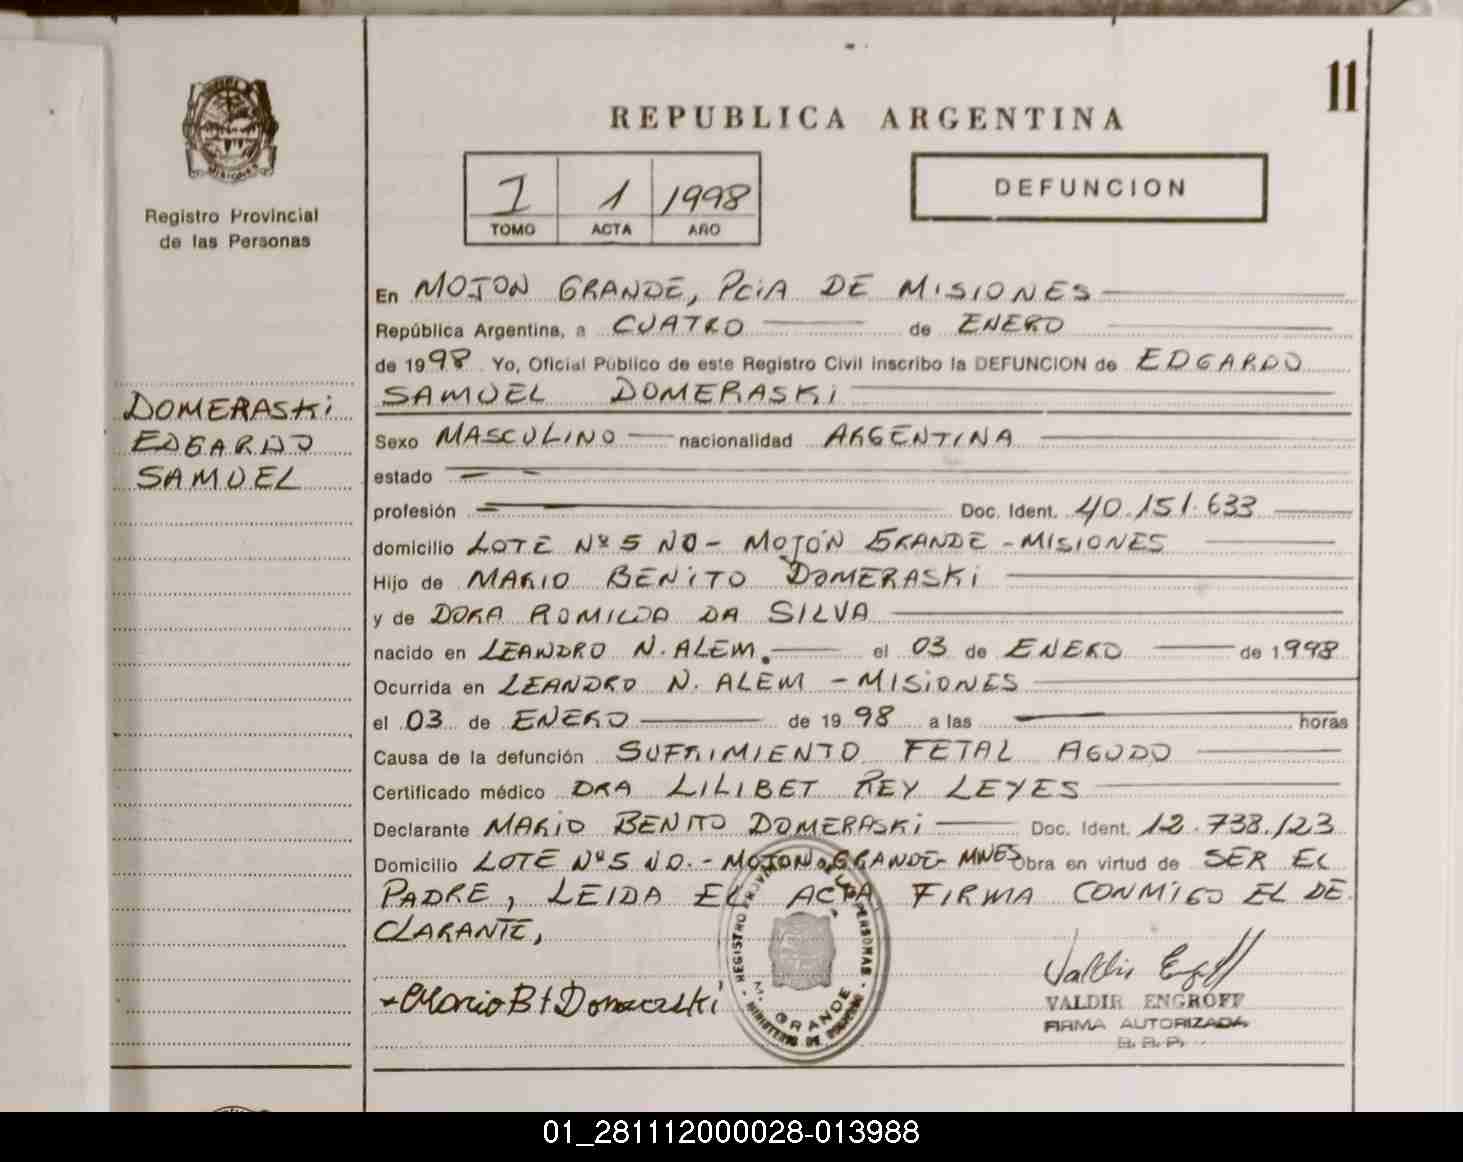 11
REPUBLICA ARGENTINA
MISIONES
Registro Provincial
de las Personas
1 1 1998
TOMO ACTA AÑO
DEFUNCION
DOMERASKi
EDGARDO
SAMUEL
En MOJON GRANDE, PciA DE MISIONES
República Argentina, a CUATRO de ENERO
de 1998 Yo, Oficial Público de este Registro Civil inscribo la DEFUNCION de EDGARDO
SAMUEL DOMERASKi
Sexo MASCULINO nacionalidad ARGENTINA
estado
profesión Doc. Ident. 40.151.633
domicilio LOTE Nº 5 NO - MOJÓN GRANDE - MISIONES
Hijo de MARIO BENITO DOMERASKi
y de DORA ROMILDA DA SILVA
nacido en LEANDRO N. ALEM. el 03 de ENERO de 1998
Ocurrida en LEANDRO N. ALEM - MISIONES
el 03 de ENERO de 1998 a las horas
Causa de la defunción SUFRIMIENTO FETAL AGUDO
Certificado médico DRA LILIBET REY LEYES
Declarante MARIO BENITO DOMERASKi Doc. Ident. 12.738.123
Domicilio LOTE Nº 5 NO. - MOJON GRANDE - MNES Obra en virtud de SER EL
PADRE, LEIDA EL ACTA, FIRMA CONMIGO EL DE
CLARANTE,
REGISTRO PROVINCIAL DE LAS PERSONAS
M. GRANDE
MINISTERIO DE GOBIERNO
Mario Bt Domeraski
VALDIR ENGROFF
FIRMA AUTORIZADA
R. P. P.
01_281112000028-013988